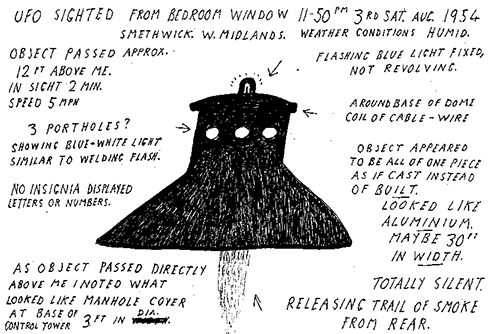 UFO SIGHTED FROM BEDROOM WINDOW 11-50 PM 3RD SAT. AUG. 1954
SMETHWICK. W. MIDLANDS. WEATHER CONDITIONS HUMID.
OBJECT PASSED APPROX.
12 FT ABOVE ME.
IN SIGHT 2 MIN.
SPEED 5 MPH
FLASHING BLUE LIGHT FIXED,
NOT REVOLVING.
3 PORTHOLES?
SHOWING BLUE+WHITE LIGHT
SIMILAR TO WELDING FLASH.
AROUND BASE OF DOME
COIL OF CABLE-WIRE
NO INSIGNIA DISPLAYED
LETTERS OR NUMBERS.
OBJECT APPEARED
TO BE ALL OF ONE PIECE
AS IF CAST INSTEAD
OF BUILT.
LOOKED LIKE
ALUMINIUM.
MAYBE 30 FT
IN WIDTH.
AS OBJECT PASSED DIRECTLY
ABOVE ME I NOTED WHAT
LOOKED LIKE MANHOLE COVER
AT BASE OF
CONTROL TOWER 3 FT IN DIA.
TOTALLY SILENT.
RELEASING TRAIL OF SMOKE
FROM REAR.